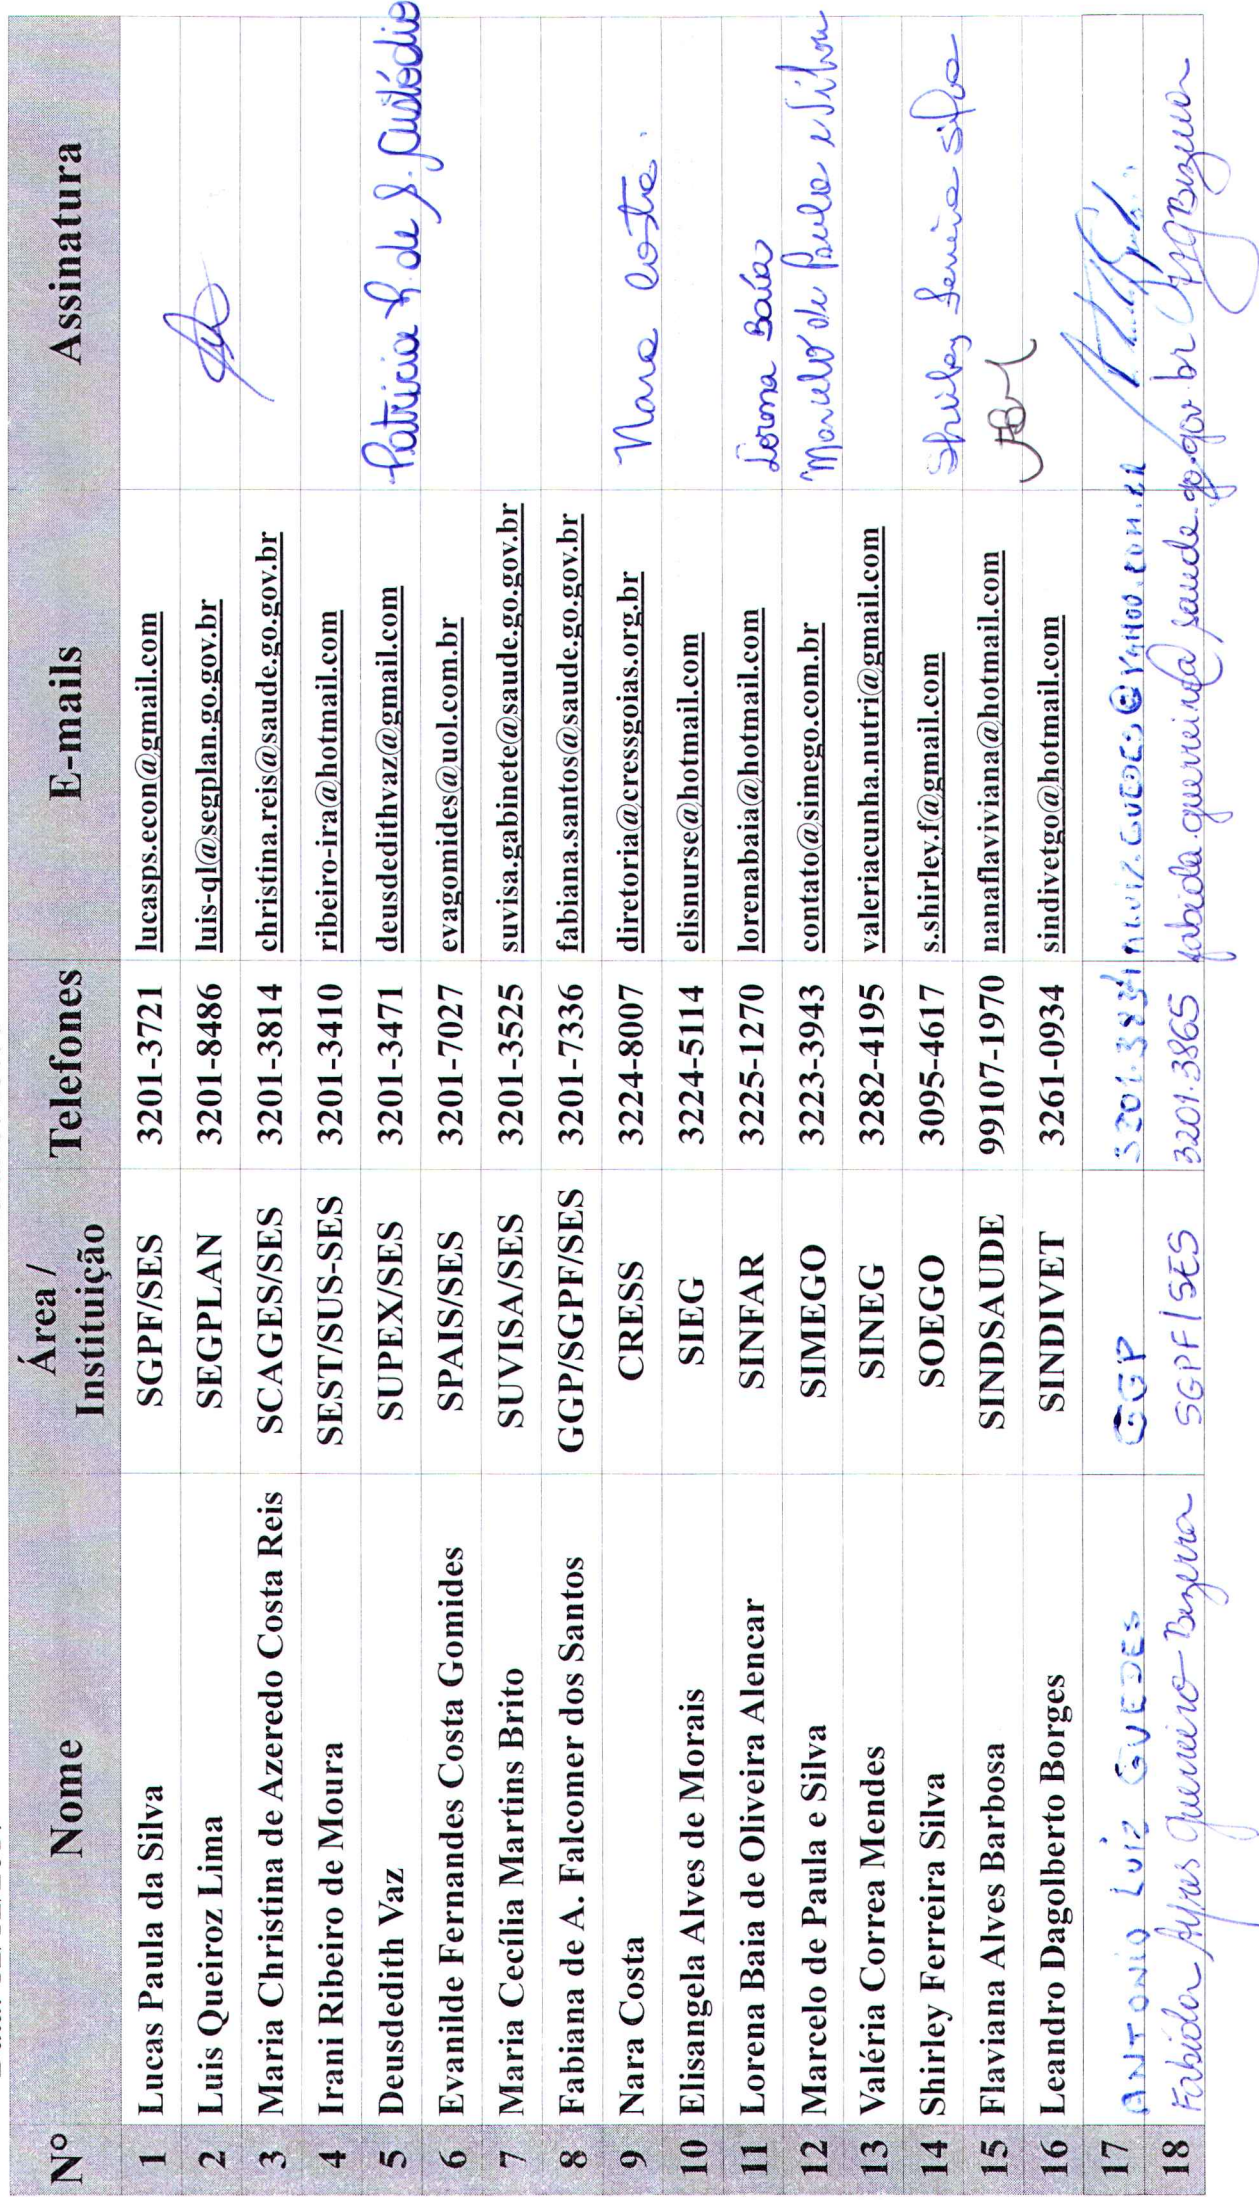 Nº Nome Área / Instituição Telefones E-mails Assinatura
1 Lucas Paula da Silva SGPF/SES 3201-3721 lucasps.econ@gmail.com
2 Luis Queiroz Lima SEGPLAN 3201-8486 luis-ql@segplan.go.gov.br
3 Maria Christina de Azeredo Costa Reis SCAGES/SES 3201-3814 christina.reis@saude.go.gov.br
4 Irani Ribeiro de Moura SEST/SUS-SES 3201-3410 ribeiro-ira@hotmail.com
5 Deusdedith Vaz SUPEX/SES 3201-3471 deusdedithvaz@gmail.com Patricia R. de S. Custódio
6 Evanilde Fernandes Costa Gomides SPAIS/SES 3201-7027 evagomides@uol.com.br
7 Maria Cecília Martins Brito SUVISA/SES 3201-3525 suvisa.gabinete@saude.go.gov.br
8 Fabiana de A. Falcomer dos Santos GGP/SGPF/SES 3201-7336 fabiana.santos@saude.go.gov.br
9 Nara Costa CRESS 3224-8007 diretoria@cressgoias.org.br Nara Costa.
10 Elisangela Alves de Morais SIEG 3224-5114 elisnurse@hotmail.com
11 Lorena Baia de Oliveira Alencar SINFAR 3225-1270 lorenabaia@hotmail.com Lorena Baía
12 Marcelo de Paula e Silva SIMEGO 3223-3943 contato@simego.com.br Marcelo de Paula e Silva
13 Valéria Correa Mendes SINEG 3282-4195 valeriacunha.nutri@gmail.com
14 Shirley Ferreira Silva SOEGO 3095-4617 s.shirley.f@gmail.com Shirley Ferreira Silva
15 Flaviana Alves Barbosa SINDSAUDE 99107-1970 nanaflaviviana@hotmail.com
16 Leandro Dagolberto Borges SINDIVET 3261-0934 sindivetgo@hotmail.com
17 ANTONIO LUIZ GUEDES GGP
18 Fabíola Ayres Guerreiro Bezerra SGPF/SES 3201.3865 fabiola.guerreiro@saude.go.gov.br